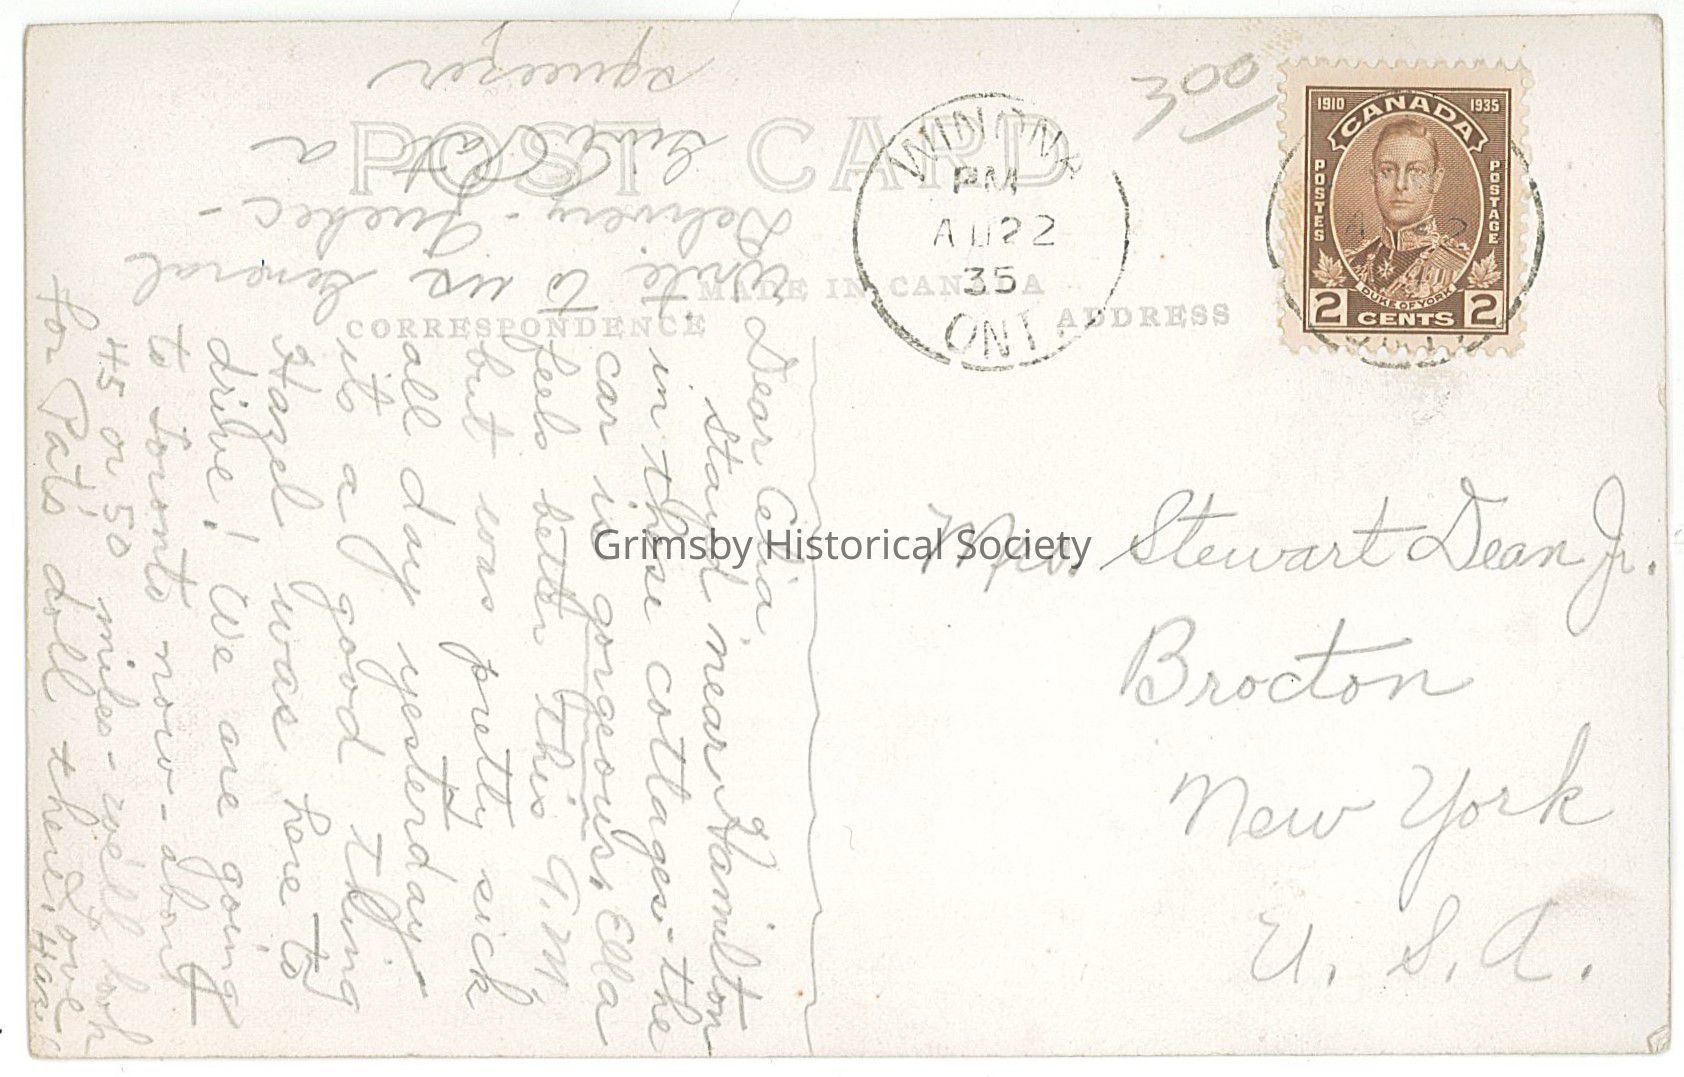 POST CARD
MADE IN CANADA
CORRESPONDENCE
ADDRESS
3 00
WINONA
PM
AU 22
35
ONT.
1910 CANADA 1935
POSTES POSTAGE
DUKE OF YORK
2 CENTS 2
Mrs. Stewart Dean Jr.
Brocton
New York
U. S. A.
Dear Celia,
Stayed near Hamilton
in these cottages - the
car is gorgeous. Ella
feels better this A.M.
but was pretty sick
all day yesterday
it's a good thing
Hazel was here to
drive! We are going
to Toronto now - about
45 or 50 miles - we'll look
for Pat's doll there. Love
Write to us General
Delivery - Quebec -
Give Pat a
squeeze
Grimsby Historical Society